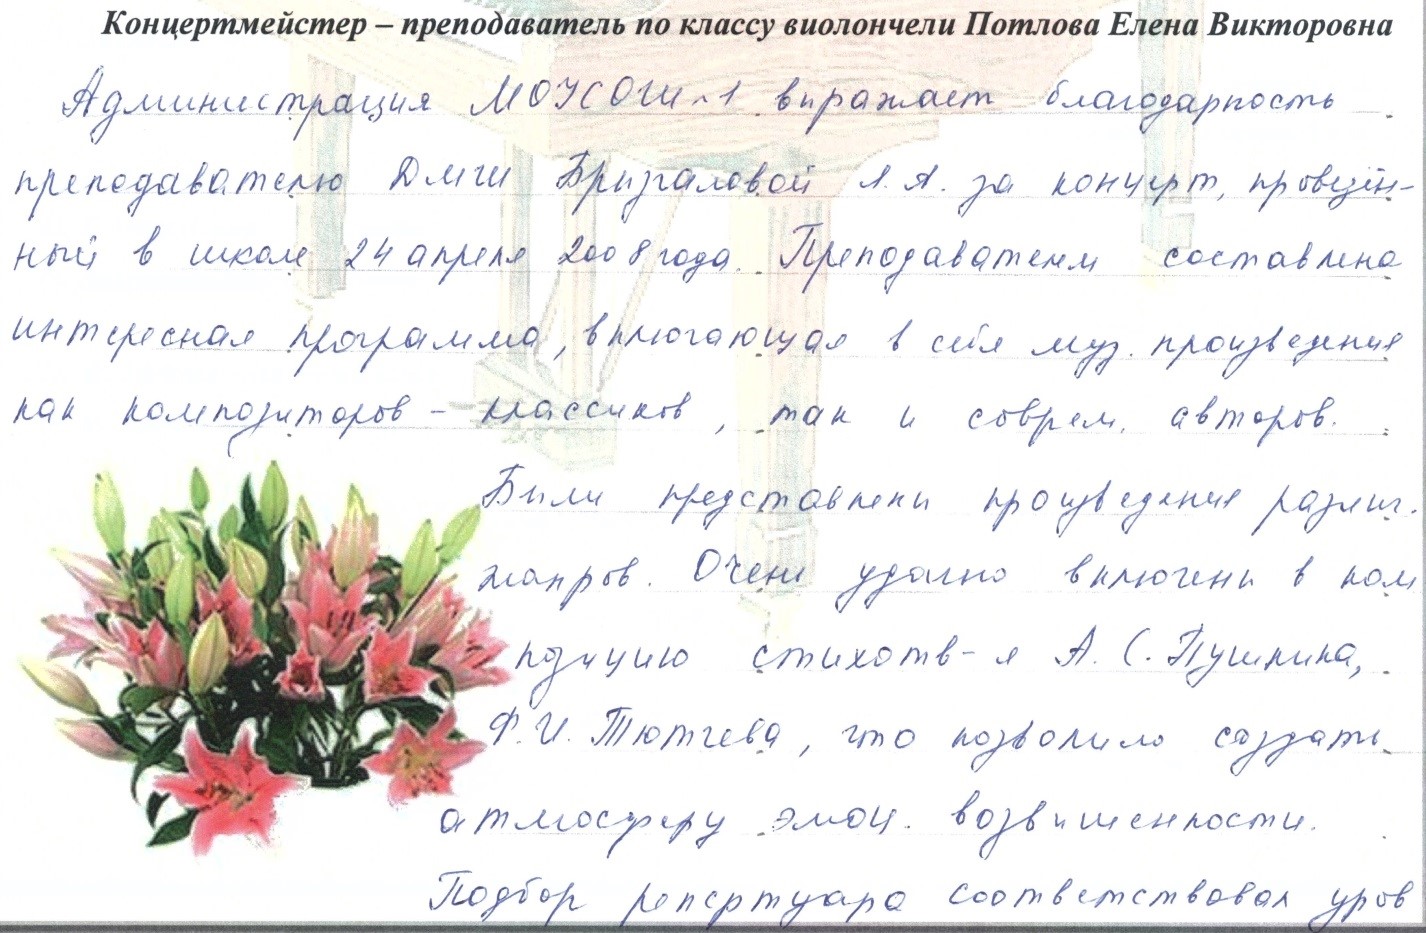 Концертмейстер – преподаватель по классу виолончели Потлова Елена Викторовна
Администрация МОУСОШ№1 выражает благодарность
преподавателю ДМШ Брызгаловой Л.А. за концерт, проведён-
ный в школе 24 апреля 2008 года. Преподавателем составлена
интересная программа, включающая в себя муз. произведения
как композиторов – классиков, так и соврем. авторов.
Были представлены произведения различ.
жанров. Очень удачно включены в ком
позицию стихотв-я А.С. Пушкина,
Ф.И. Тютчева, что позволило создать
атмосферу эмоц. возвышенности.
Подбор репертуара соответствовал уров